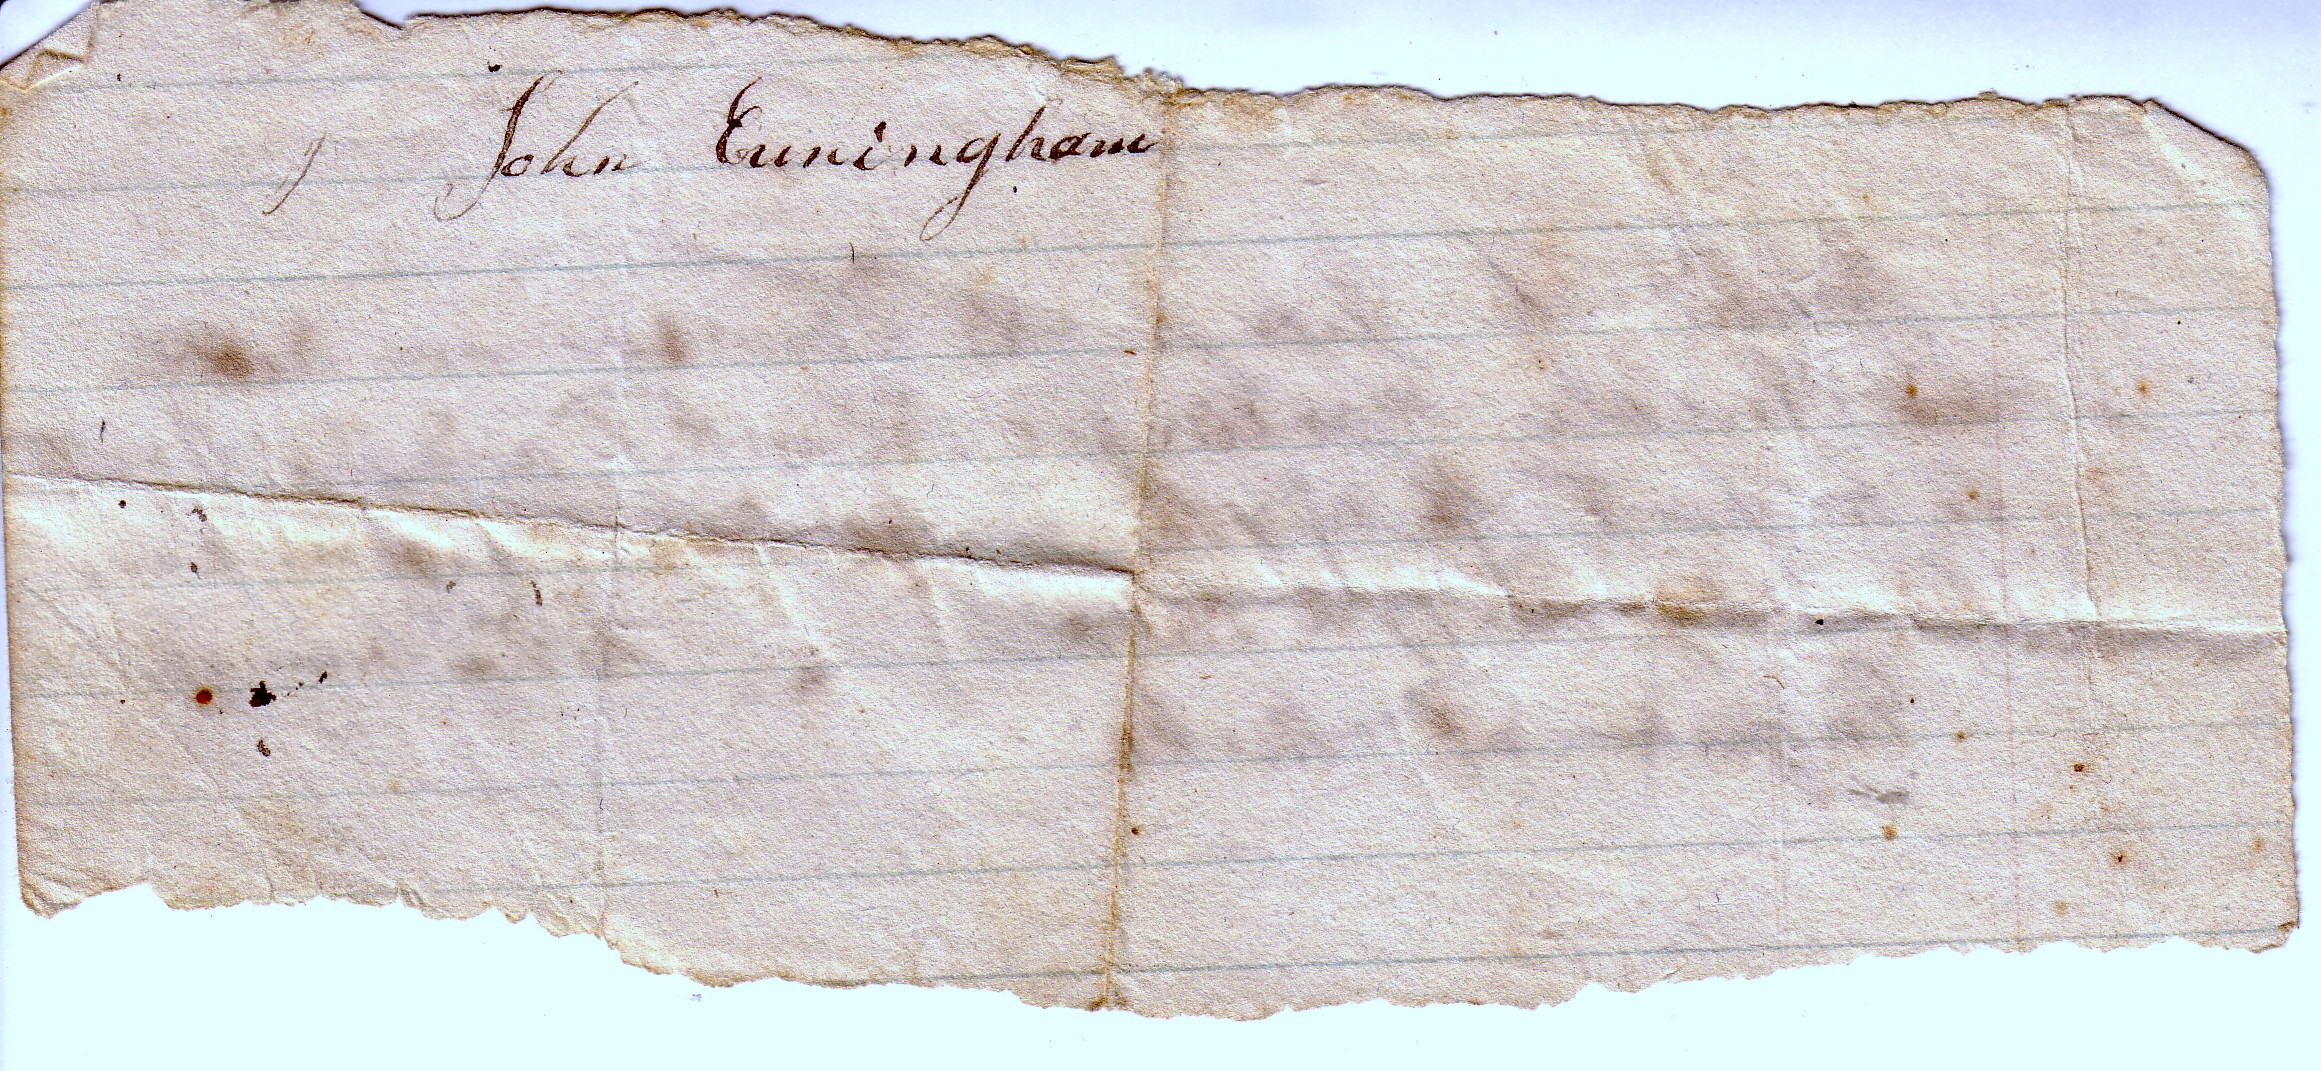 John Cuningham